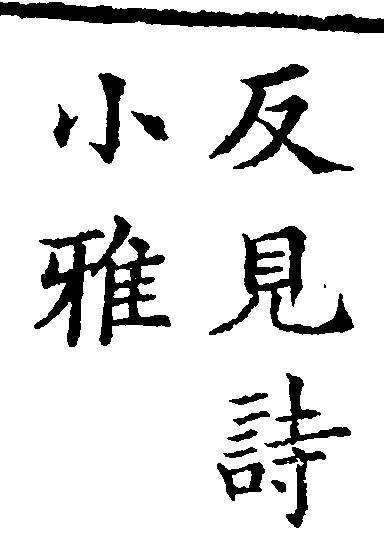 反見詩
小雅